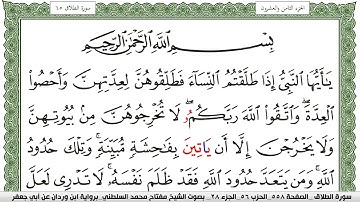 سورة الطلاق ٦٥
الجزء الثامن والعشرون
بِسْمِ اللَّهِ الرَّحْمَٰنِ الرَّحِيمِ
يَٰأَيُّهَا النَّبِيُّ إِذَا طَلَّقْتُمُ النِّسَآءَ فَطَلِّقُوهُنَّ لِعِدَّتِهِنَّ وَأَحْصُوا
الْعِدَّةَ وَاتَّقُوا اللَّهَ رَبَّكُمْ لَا تُخْرِجُوهُنَّ مِنْ بُيُوتِهِنَّ
وَلَا يَخْرُجْنَ إِلَّا أَن يَاتِينَ بِفَٰحِشَةٍ مُّبَيِّنَةٍ وَتِلْكَ حُدُودُ
اللَّهِ وَمَن يَتَعَدَّ حُدُودَ اللَّهِ فَقَدْ ظَلَمَ نَفْسَهُۥ لَا تَدْرِى لَعَلَّ
سورة الطلاق . الصفحة ٥٥٨. الحزب ٥٦. الجزء ٢٨ . بصوت الشيخ مفتاح محمد السلطني . برواية ابن وردان عن أبي جعفر